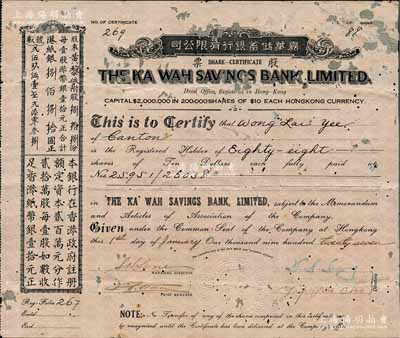 NO. OF CERTIFICATE
269
88
司公限有行銀蓄儲華嘉
SHARE-CERTIFICATE
票 股
THE KA WAH SAVINGS BANK, LIMITED.
Head Office, Registered in Hong-Kong
CAPITAL $2,000,000 IN 200,000 SHARES OF $10 EACH HONGKONG CURRENCY
This is to Certify that Wong Lai Yee
of Canton
is the Registered Holder of Eighty-eight
shares of Ten Dollars each fully paid
No. 25951/26038
in THE KA WAH SAVINGS BANK, LIMITED, subject to the Memorandum
and Articles of Association of the Company.
Given under the Common Seal of the Company at Hongkong
this 1st day of January One thousand nine hundred twenty seven
MANAGING DIRECTOR
NOTE: No Transfer of any of the shares comprised in this Certificate can
be recognised until the Certificate has been delivered at the Company's
每股股港幣銀壹十元正合計
港紙銀捌佰捌拾圓正
本銀行在香港政府註冊
額定資本貳百萬元分作
貳拾萬股每股如數收
足香港紙幣銀壹十元正
Reg. Folio 267
Entd.
Exd.